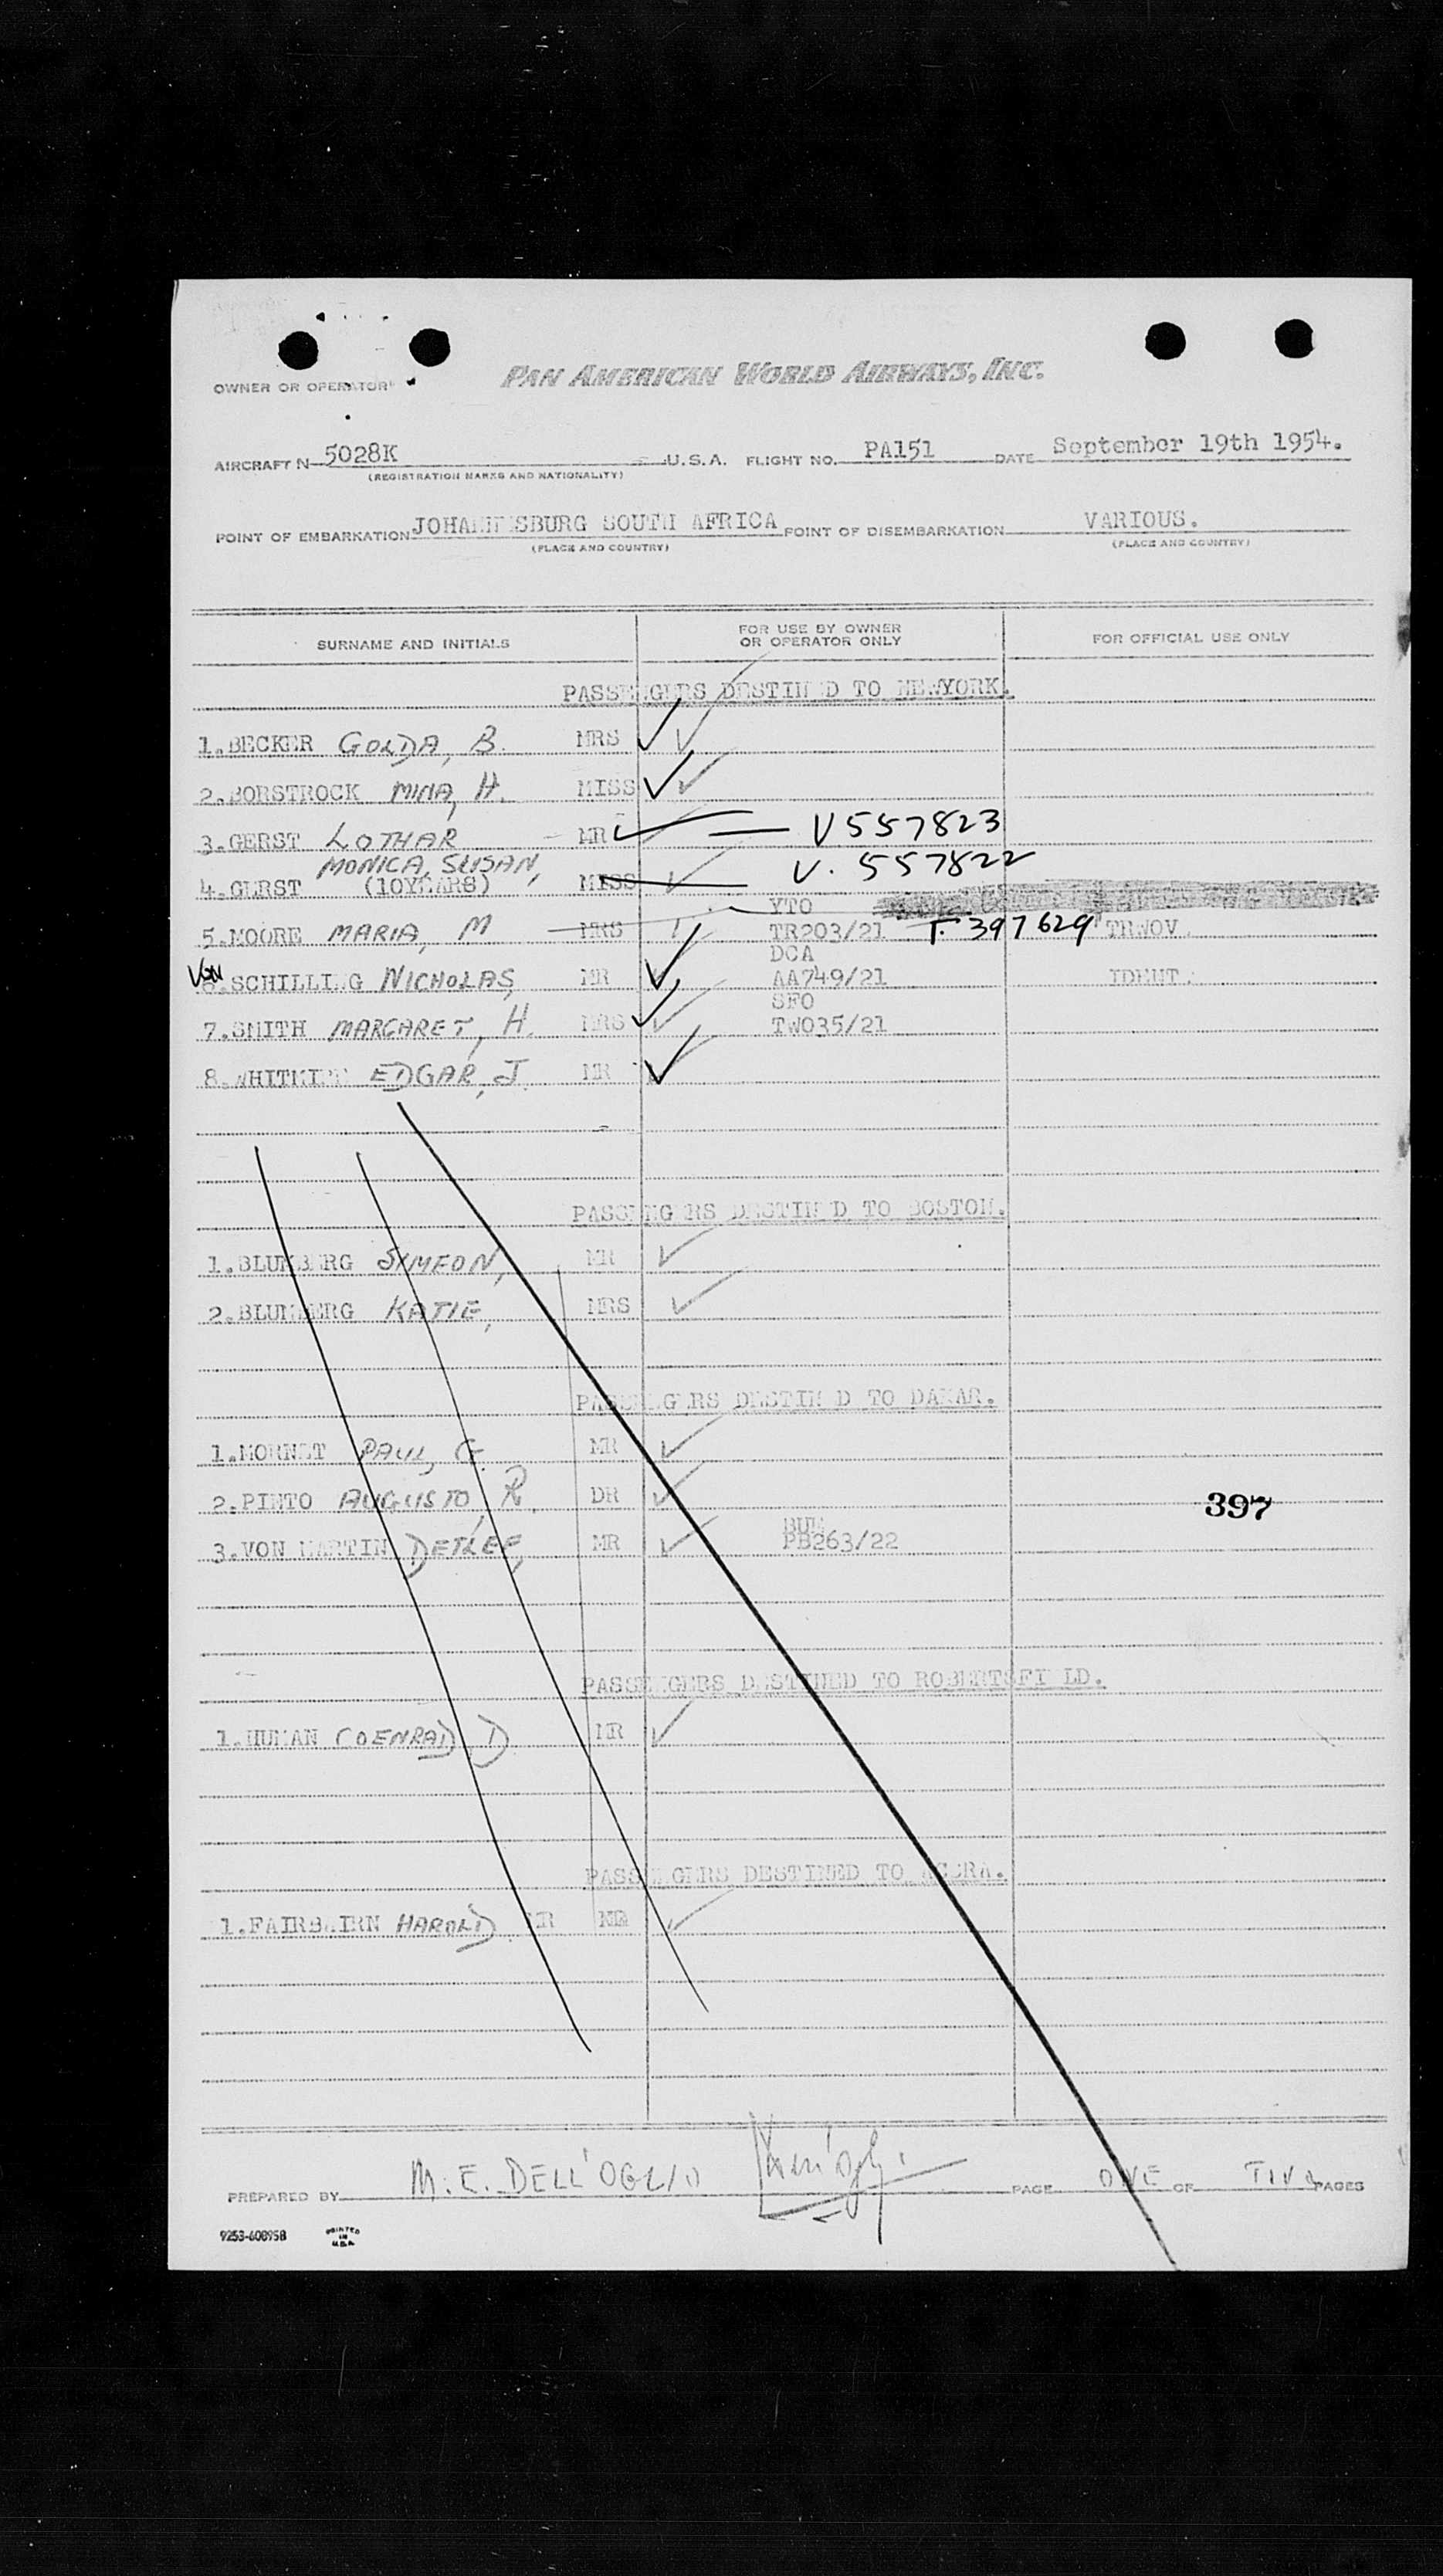 PAN AMERICAN WORLD AIRWAYS, INC.
OWNER OR OPERATOR
AIRCRAFT N 5028K U.S.A. FLIGHT NO. PA151 DATE September 19th 1954.
(REGISTRATION MARKS AND NATIONALITY)
POINT OF EMBARKATION JOHANNESBURG SOUTH AFRICA POINT OF DISEMBARKATION VARIOUS.
(PLACE AND COUNTRY) (PLACE AND COUNTRY)
SURNAME AND INITIALS FOR USE BY OWNER OR OPERATOR ONLY FOR OFFICIAL USE ONLY
PASSENGERS DESTINED TO NEWYORK.
1.BECKER GOLDA, B. MRS
2.BORSTROCK MINA, H. MISS
3.GERST LOTHAR MR V557823
MONICA, SUSAN, V. 557822
4.GERST (10YEARS) MISS
YTO
5.MOORE MARIA, M MRS TR203/21 T. 397629 TRWOV.
VON DCA
6.SCHILLING NICHOLAS, MR AA749/21 IDENT.
SFO
7.SMITH MARGARET, H. MRS TW035/21
8. EDGAR, J. MR
PASSENGERS DESTINED TO BOSTON.
1.BLUMBERG SIMEON, MR
2.BLUMBERG KATIE, MRS
PASSENGERS DESTINED TO DAKAR.
1.MORNET PAUL, G. MR
2.PINTO AUGUSTO, R. DR
397
3.VON MARTIN DETLEF, MR PB263/22
PASSENGERS DESTINED TO ROBERTSFIELD.
1.HUMAN COENRAD, D MR
PASSENGERS DESTINED TO ACCRA.
1.FAIRBAIRN HAROLD MR MR
PREPARED BY M. E. DELL'OGLIO PAGE ONE OF TWO PAGES
9253-608958 PRINTED IN U.S.A.